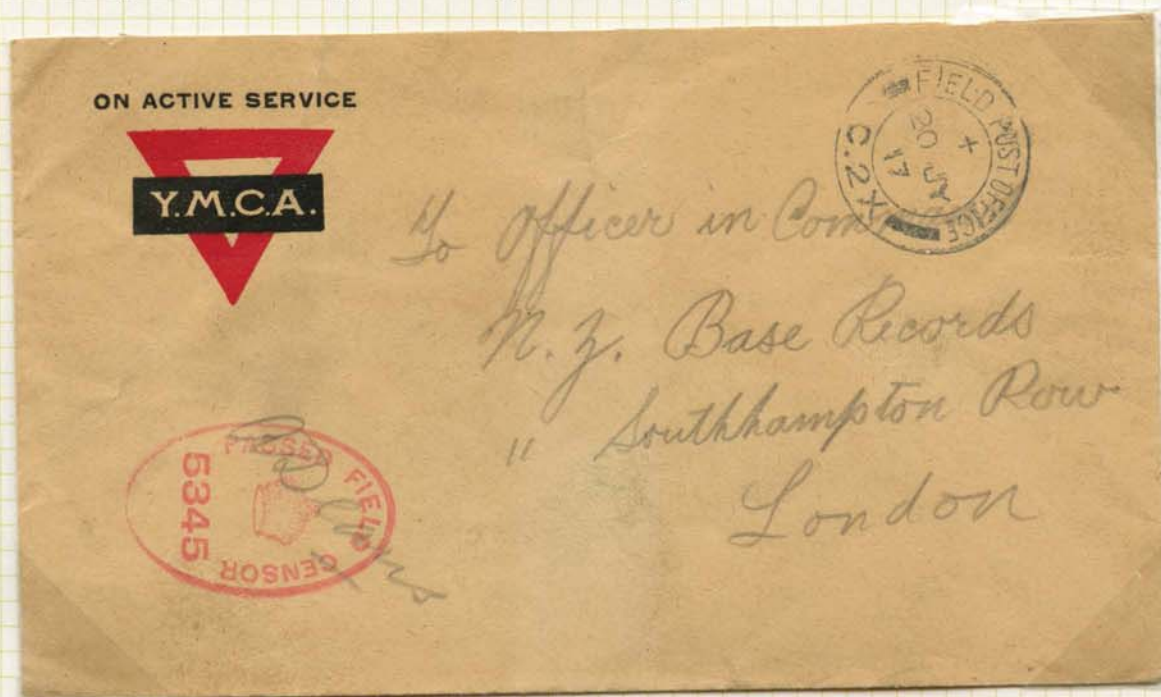 ON ACTIVE SERVICE
Y.M.C.A.
FIELD POST OFFICE
X
20 JY
17
C.2X
To Officer in Com
N. Z. Base Records
" Southhampton Row
London
PASSED FIELD CENSOR
5345